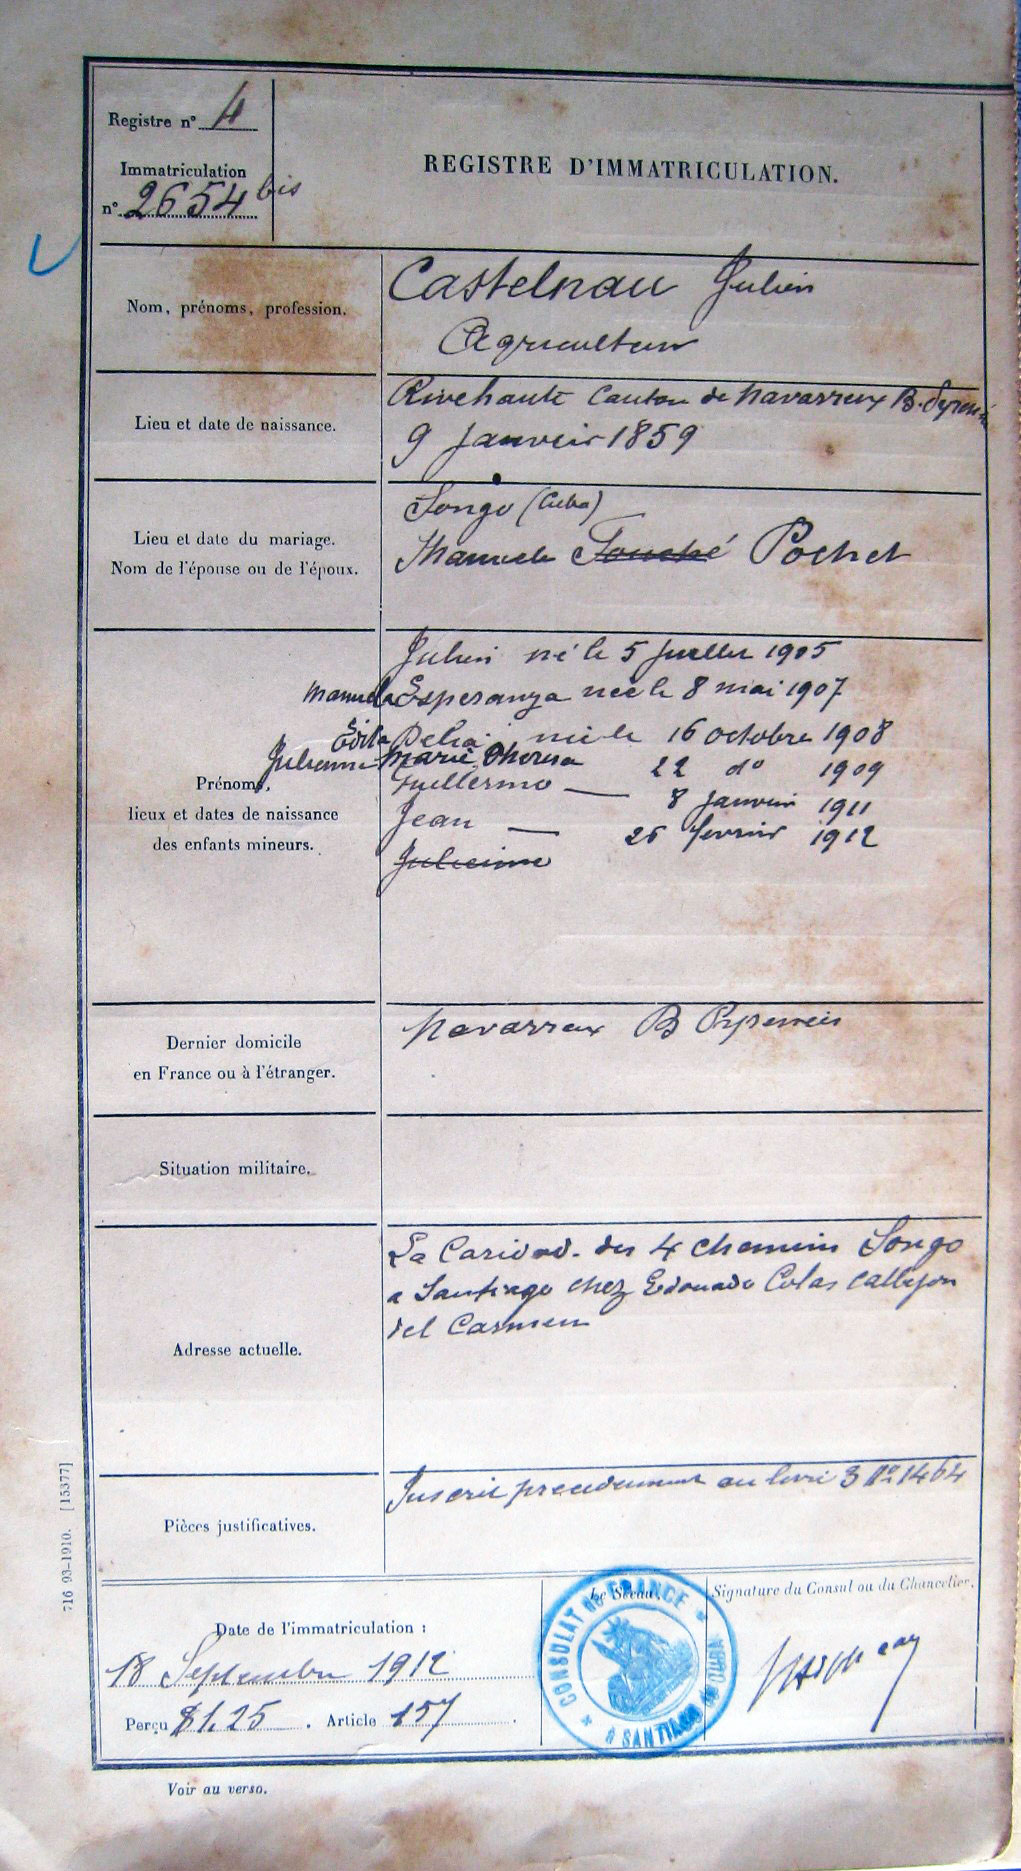 Registre n° 4
REGISTRE D'IMMATRICULATION.
Immatriculation
n° 2654 bis
Nom, prénoms, profession.
Castelnau Julien
Agriculteur
Lieu et date de naissance.
Rivehaute Canton de Navarreux B. Pyrenée
9 Janvier 1859
Lieu et date du mariage.
Nom de l'épouse ou de l'époux.
Songo (Cuba)
Manuela Touché Pochet
Prénoms,
lieux et dates de naissance
des enfants mineurs.
Julien né le 5 Juillet 1905
Manuela Esperanza née le 8 mai 1907
Edila Delia née le 16 octobre 1908
Julienne Marie Theresa 22 do 1909
Guillermo — 8 Janvier 1911
Jean — 26 fevrier 1912
Julienne
Dernier domicile
en France ou à l'étranger.
Navarreux B Pyrenées
Situation militaire.
Adresse actuelle.
La Caridad. des 4 Chemins Songo
a Santiago chez Edouado Colas Callejon
del Carmen
Pièces justificatives.
Inscrit precedemment au livre 3 no 1464
716 93-1910. [15377]
Date de l'immatriculation :
18 Septembre 1912
Perçu 8f.25. Article 157.
Le Sceau,
CONSULAT DE FRANCE
A SANTIAGO DE CUBA
Signature du Consul ou du Chancelier.
Voir au verso.